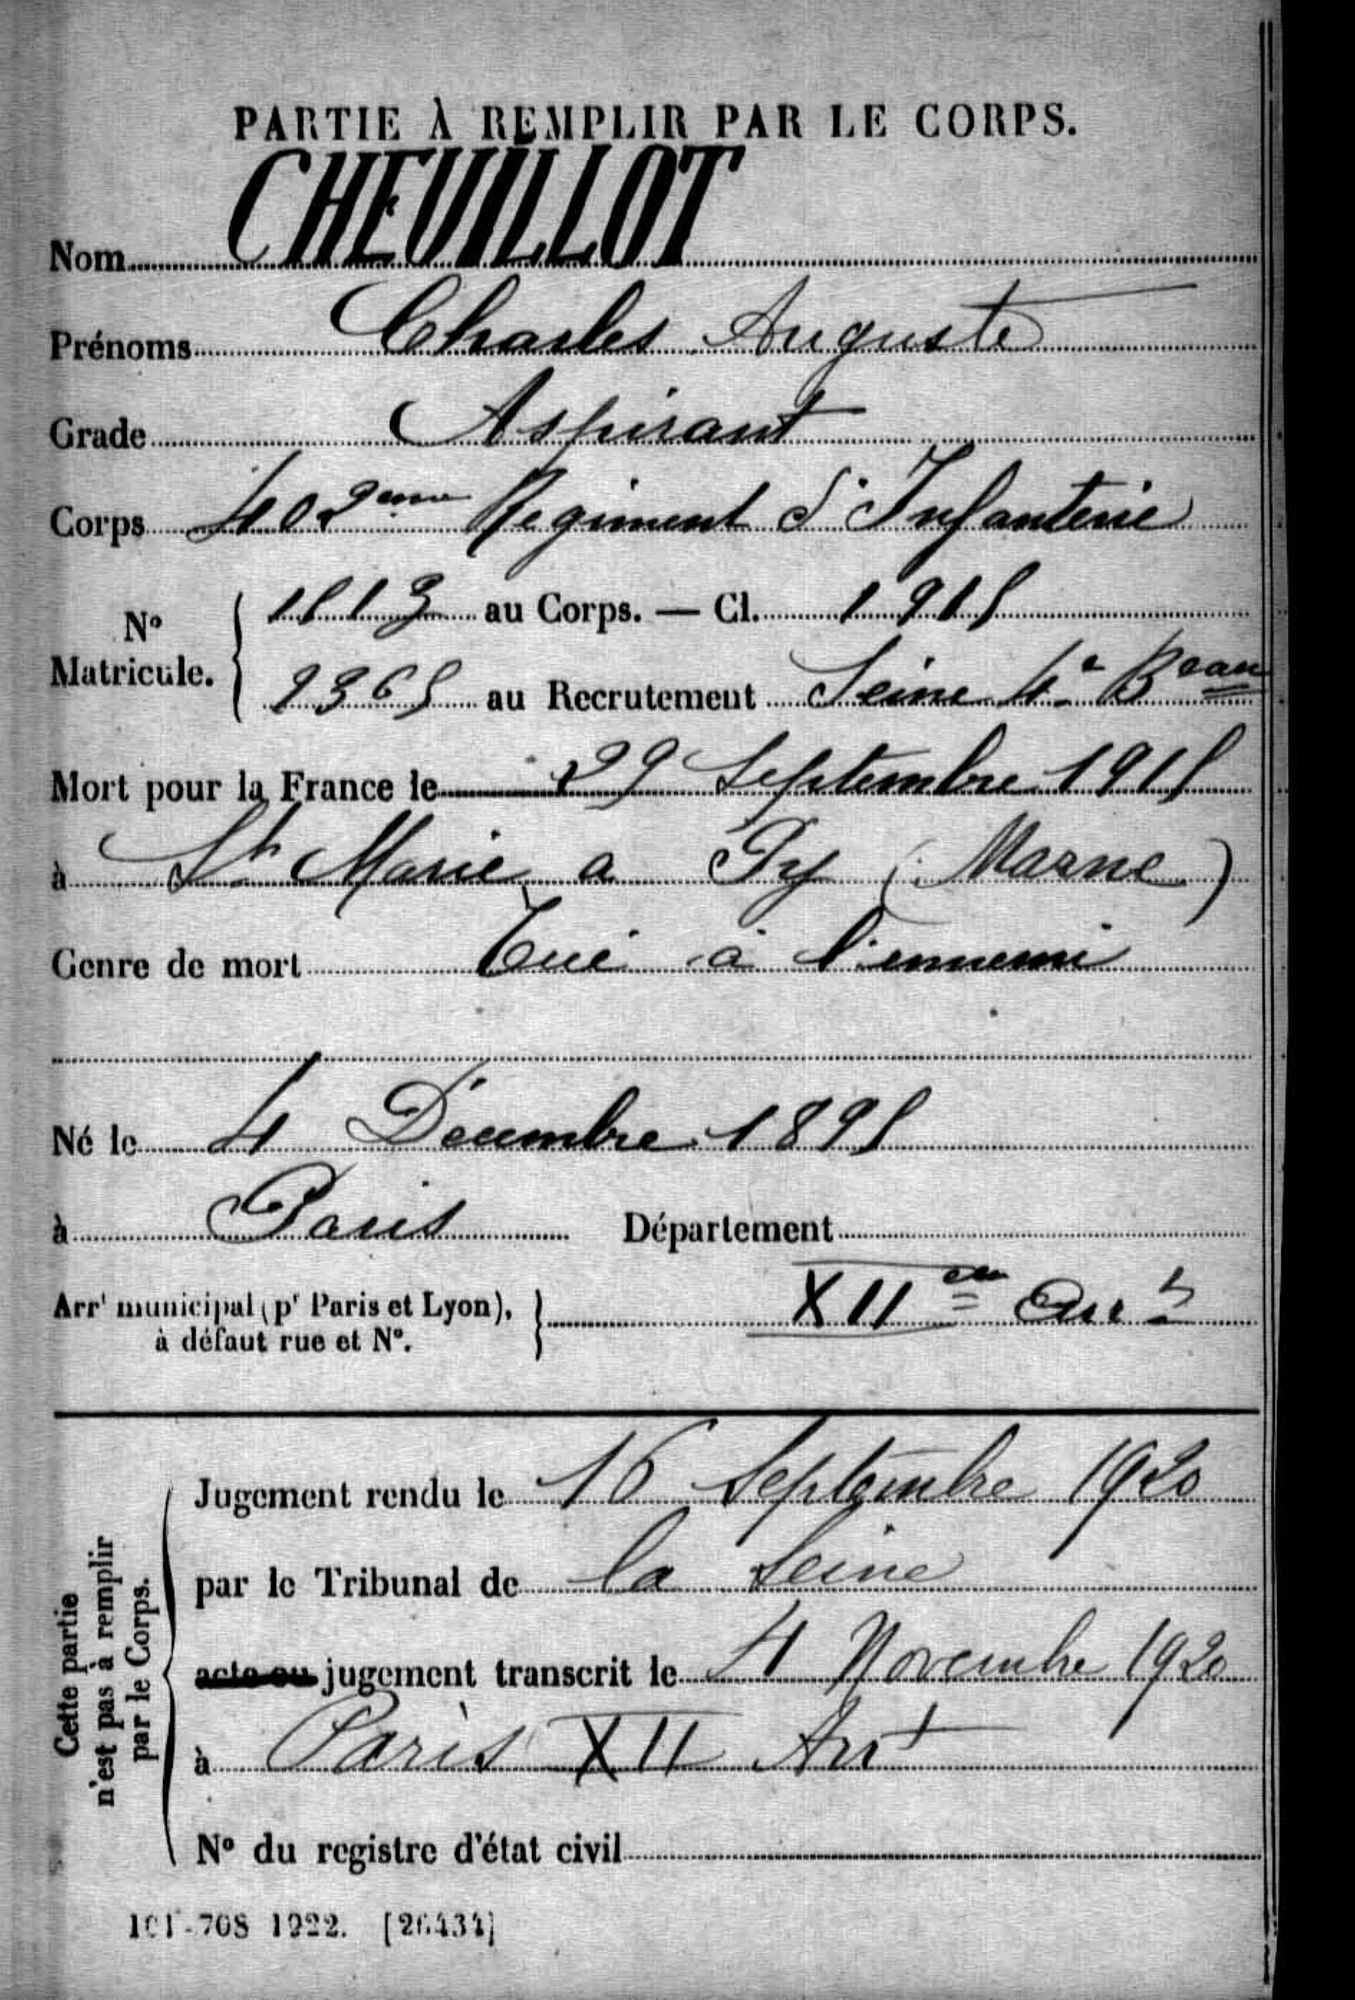 PARTIE À REMPLIR PAR LE CORPS.
Nom CHEVILLOT
Prénoms Charles Auguste
Grade Aspirant
Corps 402eme Régiment d'Infanterie
No Matricule. { 1513 au Corps. — Cl. 1915
2365 au Recrutement Seine 4e Beau
Mort pour la France le 29 Septembre 1915
à St Marie a Py (Marne)
Genre de mort Tué à l'ennemi
Né le 4 Décembre 1895
à Paris Département
Arrt municipal (pr Paris et Lyon), à défaut rue et No. } XIIeme Arrt
Cette partie n'est pas à remplir par le Corps.
Jugement rendu le 16 Septembre 1920
par le Tribunal de la Seine
acte ou jugement transcrit le 4 Novembre 1920
à Paris XII Arrt
No du registre d'état civil
101-708 1922. [26434]